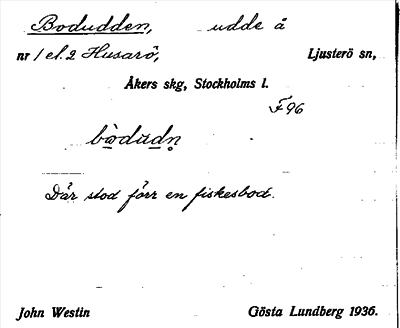 Bodudden, udde å
nr 1 el. 2 Husarö, Ljusterö sn,
Åkers skg, Stockholms l.
F96
bòdudn̥
Där stod förr en fiskesbod.
John Westin Gösta Lundberg 1936.